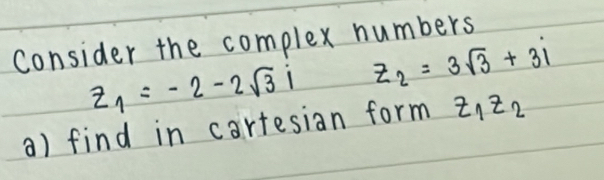 Consider the complex numbers
z₁ = - 2 - 2√3 i z₂ = 3√3 + 3i
a) find in cartesian form z₁z₂